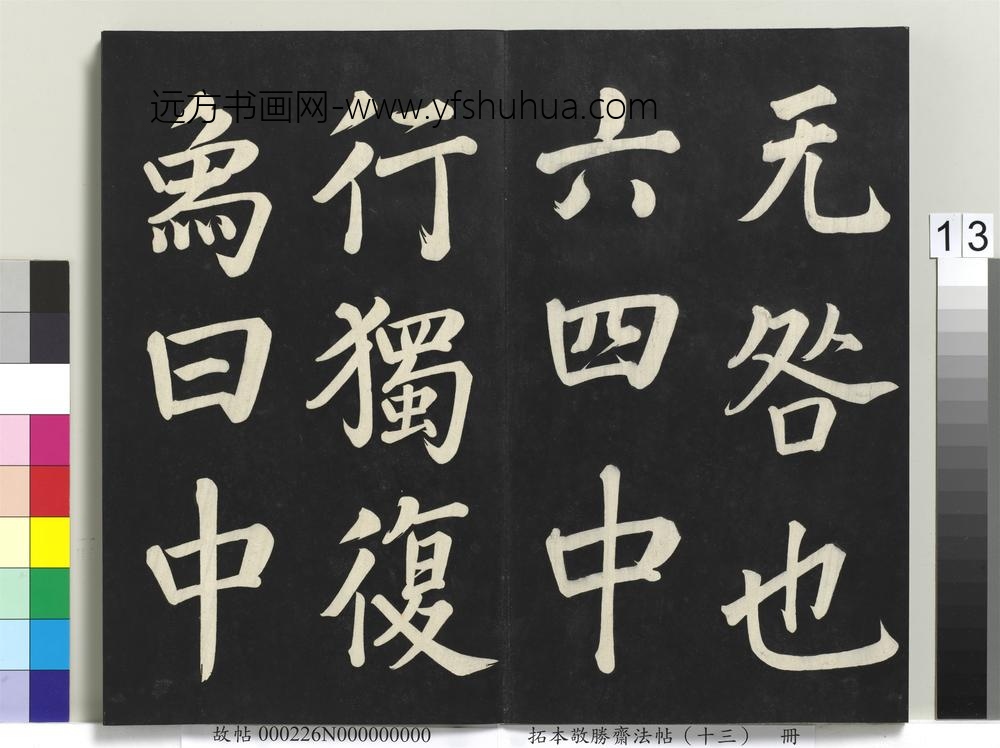 无咎也
六四中
行獨復
象曰中
远方书画网-www.yfshuhua.com
13
故帖 000226N000000000
拓本敬勝齋法帖（十三） 冊